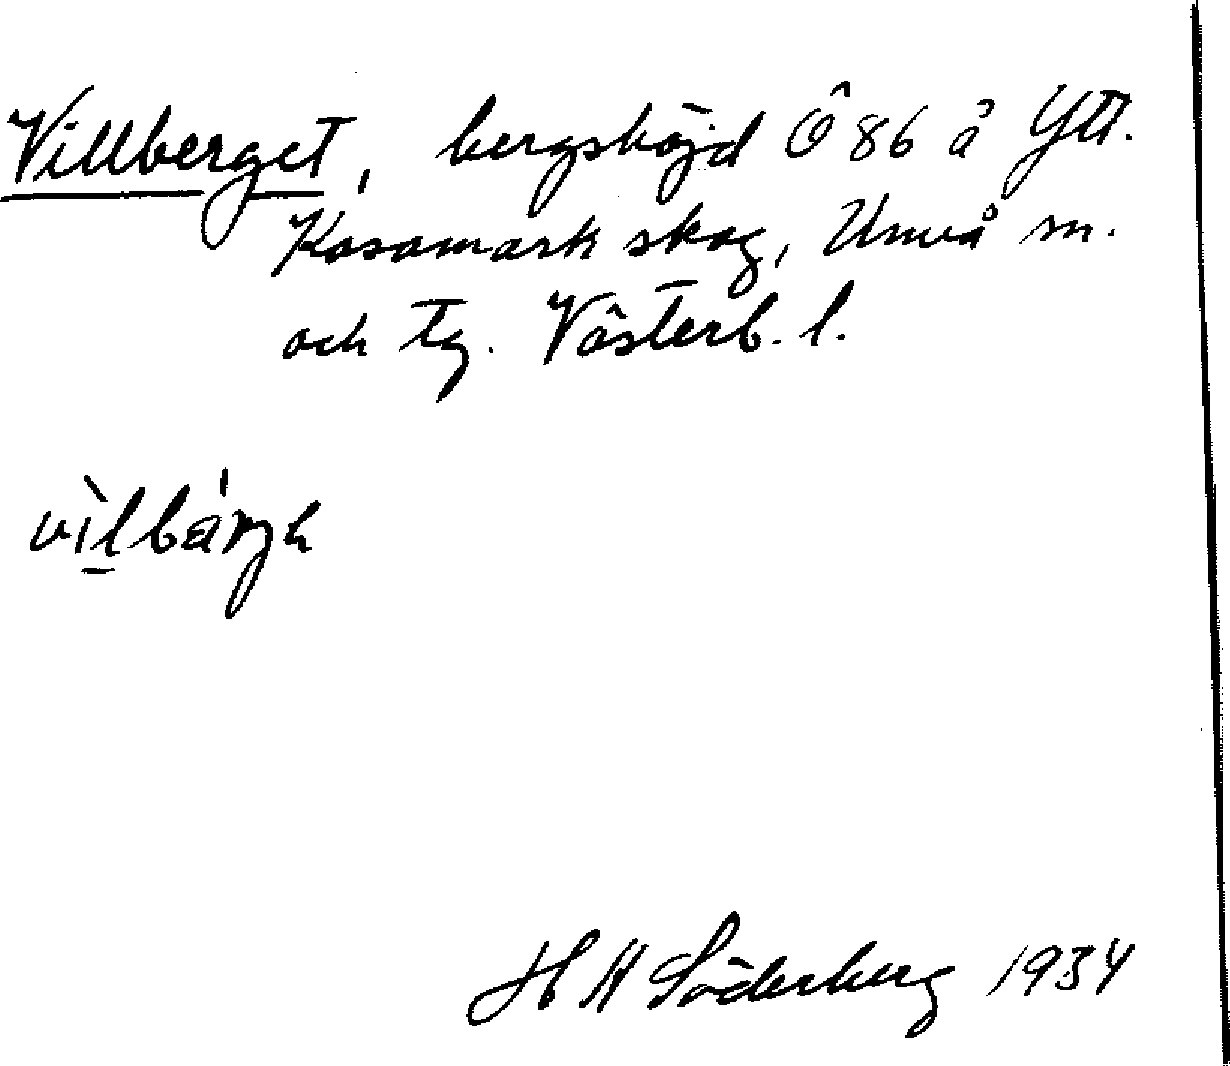 Villberget, bergshöjd Ö 86 å Ytt.
Kasamark skog, Umeå sn.
och tg. Västerb. l.
H H Söderberg 1934